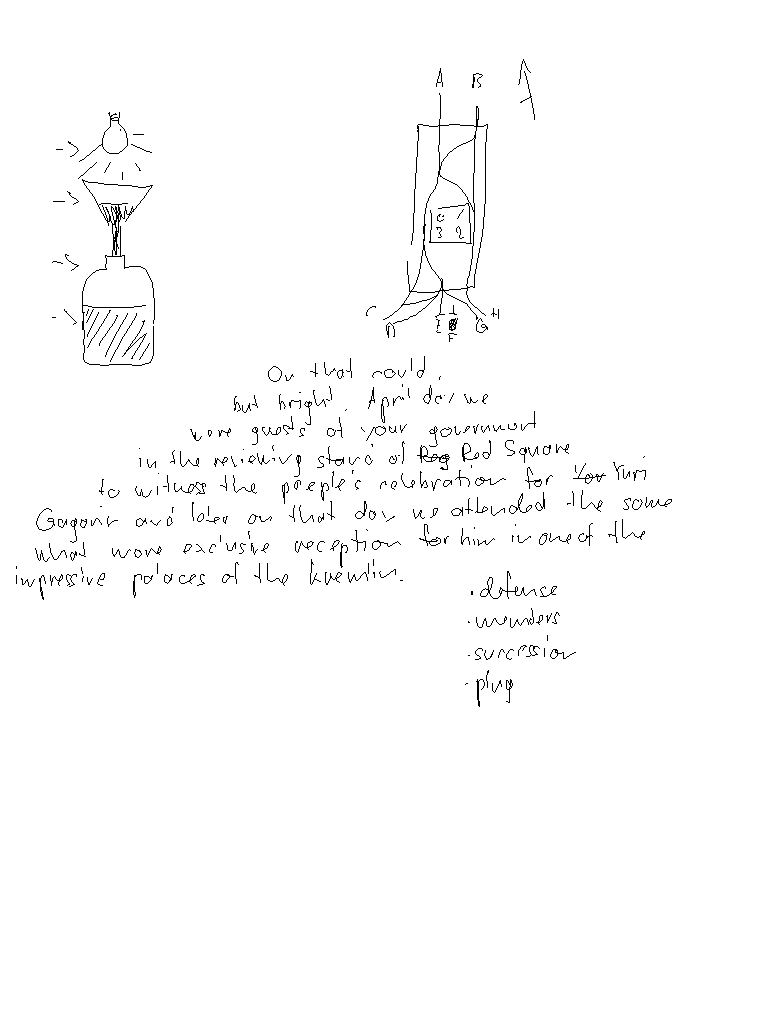 A B
0 1
3 2
C D E I F G H
On that could,
but bright April day we
were guests of your government
in the reviewing stand of Red Square
to witness the people's celebration for Yuri
Gagarin and later on that day we attended the some
what more exclusive reception for him in one of the
impressive palaces of the Kremlin.
· defense
· members
· succession
· plug